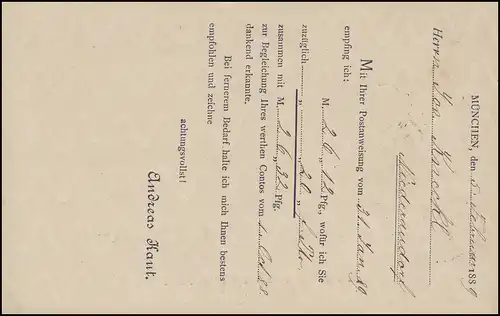 MÜNCHEN, den 5. Februar 1889
Herrn
Niederaudorf
Mit Ihrer Postanweisung vom 31. Jan. 89
empfing ich:
M. 26 „ 12 Pfg., wofür ich Sie
zuzüglich „ „ 20 „
zusammen mit M. 26 „ 32 Pfg.
zur Begleichung Ihres werthen Contos vom
dankend erkannte.
Bei fernerem Bedarf halte ich mich Ihnen bestens
empfohlen und zeichne
achtungsvollst!
Andreas Kaut.